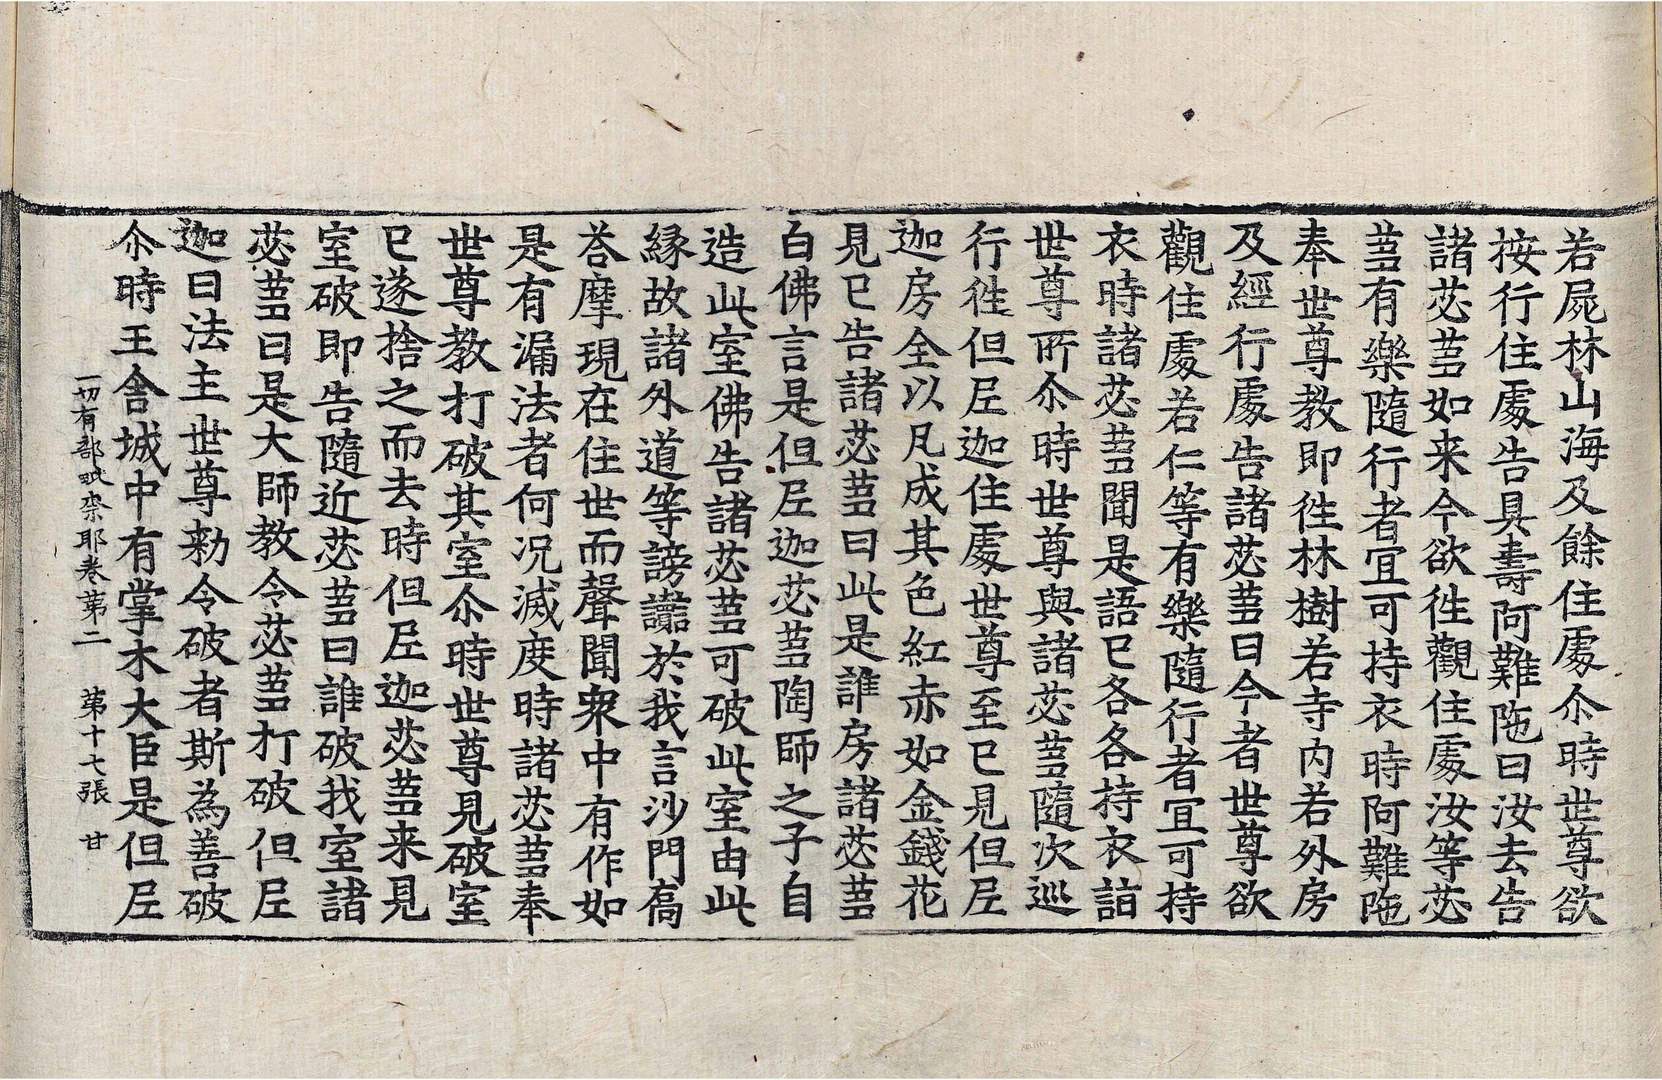 若屍林山海及餘住處尒時世尊欲
按行住處告具壽阿難陁曰汝去告
諸苾蒭如来今欲徃觀住處汝等苾
蒭有樂隨行者冝可持衣時阿難陁
奉世尊教即徃林樹若寺内若外房
及經行處告諸苾蒭曰今者世尊欲
觀住處若仁等有樂隨行者冝可持
衣時諸苾蒭聞是語已各各持衣詣
世尊所尒時世尊與諸苾蒭隨次巡
行徃但𡰱迦住處世尊至已見但𡰱
迦房全以凡成其色紅赤如金錢花
見已告諸苾蒭曰此是誰房諸苾蒭
白佛言是但𡰱迦苾蒭陶師之子自
造此室佛告諸苾蒭可破此室由此
縁故諸外道等謗讟於我言沙門喬
荅摩現在住世而聲聞衆中有作如
是有漏法者何况滅度時諸苾蒭奉
世尊教打破其室尒時世尊見破室
已遂捨之而去時但𡰱迦苾蒭来見
室破即告隨近苾蒭曰誰破我室諸
苾蒭曰是大師教令苾蒭打破但𡰱
迦曰法主世尊勑令破者斯為善破
尒時王舍城中有掌木大臣是但𡰱
一切有部毗柰耶卷第二 第十七張 甘